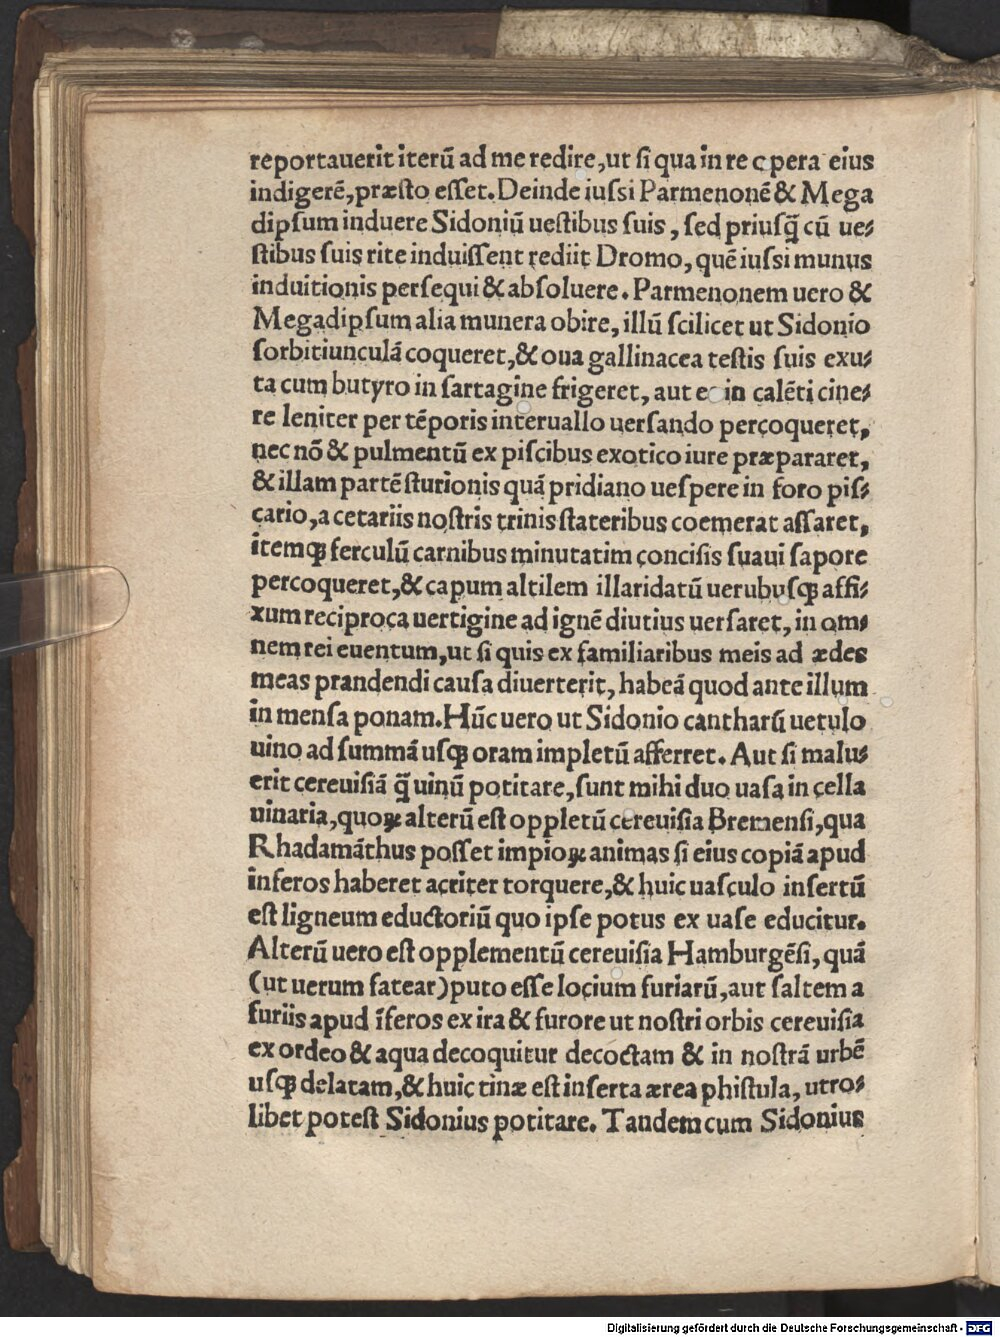 reportauerit iterū ad me redire, ut ſi qua in re opera eius
indigerē, præſto eſſet. Deinde iuſſi Parmenonē & Mega
dipſum induere Sidoniū ueſtibus ſuis, ſed priuſq̄ cū ue⸗
ſtibus ſuis rite induiſſent rediit Dromo, quē iuſſi munus
induitionis perſequi & abſoluere. Parmenonem uero &
Megadipſum alia munera obire, illū ſcilicet ut Sidonio
ſorbitiunculā coqueret, & oua gallinacea teſtis ſuis exu⸗
ta cum butyro in ſartagine frigeret, aut in calēti cine⸗
re leniter per tēporis interuallo uerſando percoqueret,
nec nō & pulmentū ex piſcibus exotico iure præpararet,
& illam partē ſturionis quā pridiano ueſpere in foro piſ⸗
cario, a cetariis noſtris trinis ſtateribus coemerat aſſaret,
itemq; ferculū carnibus minutatim conciſis ſuaui ſapore
percoqueret, & capum altilem illaridatū uerubuſq; affi⸗
xum reciproca uertigine ad ignē diutius uerſaret, in om⸗
nem rei euentum, ut ſi quis ex familiaribus meis ad ædes
meas prandendi cauſa diuerterit, habeā quod ante illum
in menſa ponam. Hūc uero ut Sidonio cantharū uetulo
uino ad ſummā uſq; oram impletū afferret. Aut ſi malu⸗
erit cereuiſiā q̄ uinū potitare, ſunt mihi duo uaſa in cella
uinaria, quoꝝ alterū eſt oppletū cereuiſia Bremenſi, qua
Rhadamāthus poſſet impioꝝ animas ſi eius copiā apud
inferos haberet acriter torquere, & huic uaſculo inſertū
eſt ligneum eductoriū quo ipſe potus ex uaſe educitur.
Alterū uero eſt opplementū cereuiſia Hamburgēſi, quā
(ut uerum fatear) puto eſſe locium furiarū, aut ſaltem a
furiis apud īferos ex ira & furore ut noſtri orbis cereuiſia
ex ordeo & aqua decoquitur decoctam & in noſtrā urbē
uſq; delatam, & huic tinæ eſt inſerta ærea phiſtula, utro⸗
libet poteſt Sidonius potitare. Tandem cum Sidonius
Digitalisierung gefördert durch die Deutsche Forschungsgemeinschaft - DFG